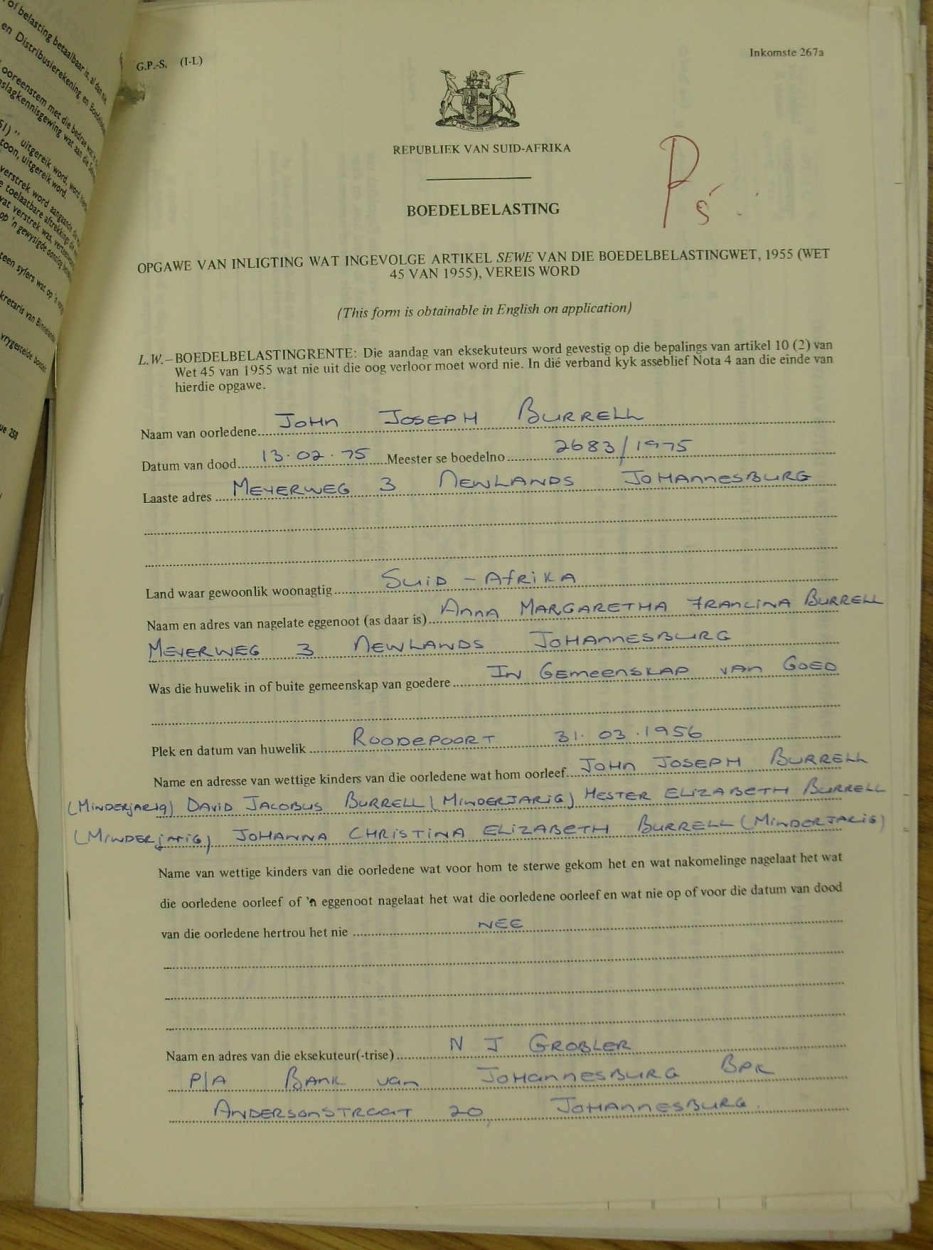 of belasting betaalbaar is, al dan nie
en Distribusierekening en Boedel
ooreenstem met die bedrae wat
uitgereik word, word
toon, uitgereik word.
verstrek word aangaande
toelaatbare aftrekkings
wat verstrek was,
op 'n gewysigde
teen syfers wat op
kretaris van Binnelandse
vrygestelde boedel
G.P.-S. (I-L)
Inkomste 267a
REPUBLIEK VAN SUID-AFRIKA
BOEDELBELASTING
OPGAWE VAN INLIGTING WAT INGEVOLGE ARTIKEL SEWE VAN DIE BOEDELBELASTINGWET, 1955 (WET
45 VAN 1955), VEREIS WORD
(This form is obtainable in English on application)
L.W.–BOEDELBELASTINGRENTE: Die aandag van eksekuteurs word gevestig op die bepalings van artikel 10 (2) van
Wet 45 van 1955 wat nie uit die oog verloor moet word nie. In dié verband kyk asseblief Nota 4 aan die einde van
hierdie opgawe.
Naam van oorledene JOHN JOSEPH BURRELL
Datum van dood 13.02.75 Meester se boedelno 2683/1975
Laaste adres MEYERWEG 3 NEWLANDS JOHANNESBURG
Land waar gewoonlik woonagtig SUID-AFRIKA
Naam en adres van nagelate eggenoot (as daar is) ANNA MARGARETHA FRANCINA BURRELL
MEYERWEG 3 NEWLANDS JOHANNESBURG
Was die huwelik in of buite gemeenskap van goedere IN GEMEENSKAP VAN GOED
Plek en datum van huwelik ROODEPOORT 31.03.1956
Name en adresse van wettige kinders van die oorledene wat hom oorleef JOHN JOSEPH BURRELL
(MINDERJARIG) DAVID JACOBUS BURRELL (MINDERJARIG) HESTER ELIZABETH BURRELL
(MINDERJARIG) JOHANNA CHRISTINA ELIZABETH BURRELL (MINDERJARIG)
Name van wettige kinders van die oorledene wat voor hom te sterwe gekom het en wat nakomelinge nagelaat het wat
die oorledene oorleef of 'n eggenoot nagelaat het wat die oorledene oorleef en wat nie op of voor die datum van dood
van die oorledene hertrou het nie NEE
Naam en adres van die eksekuteur(-trise) N J GROBLER
P/A BANK VAN JOHANNESBURG BPK
ANDERSONSTRAAT 20 JOHANNESBURG.